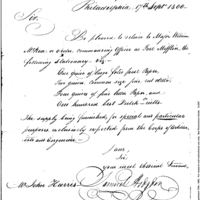 Philadelphia, 17th Sept 1800.
Sir,
Be pleased to return to Major William
McRea or order, commanding Officer at Fort Mifflin, the
following stationary. viz.
One quire of large folio post Paper,
Two quires common size fine cut ditto
Four quires of fine Paper, and
One hundred best Dutch quills.
The supply being furnished, for special and particular
purposes exclusively expected from the Corps of Artiller-
ists and Engineers.
I am,
Sir,
your most obedient Servant,
Mr John Harris
Samuel Hodgdon